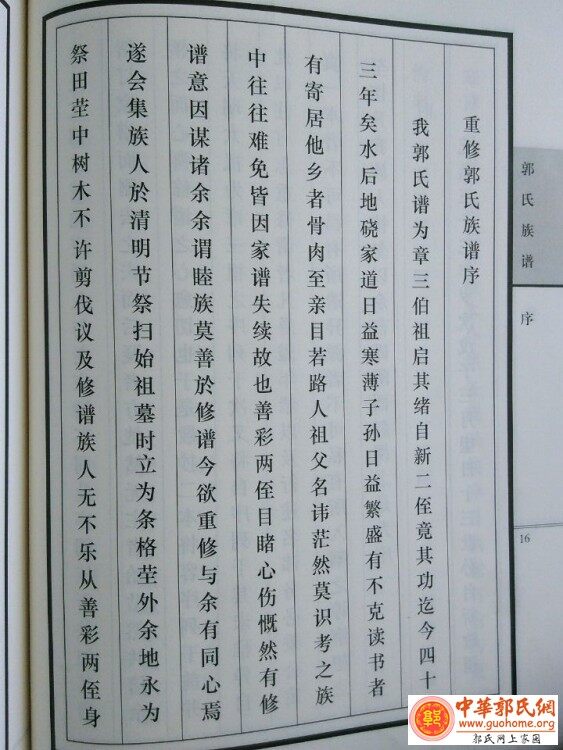 重修郭氏族谱序
我郭氏谱为章三伯祖启其绪自新二侄竟其功迄今四十
三年矣水后地硗家道日益寒薄子孙日益繁盛有不克读书者
有寄居他乡者骨肉至亲目若路人祖父名讳茫然莫识考之族
中往往难免皆因家谱失续故也善彩两侄目睹心伤慨然有修
谱意因谋诸余余谓睦族莫善於修谱今欲重修与余有同心焉
遂会集族人於清明节祭扫始祖墓时立为条格茔外余地永为
祭田茔中树木不许剪伐议及修谱族人无不乐从善彩两侄身
郭氏族谱
序
16
中華郭氏網
www.guohome.org
郭氏网上家园